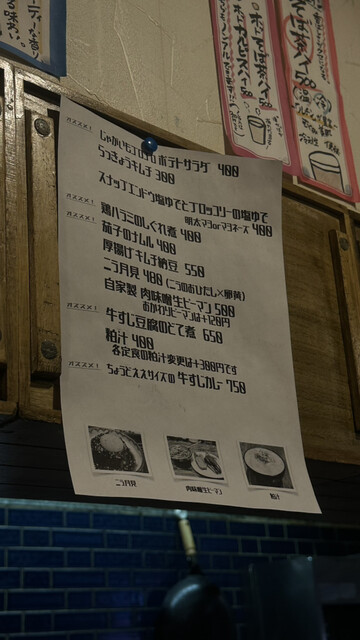 オススメ! じゃがいもゴロゴロ ポテトサラダ 400
らっきょうキムチ 300
スナップエンドウ塩ゆでとブロッコリーの塩ゆで
明太マヨorマヨネーズ 400
オススメ! 鶏ハラミのしぐれ煮 400
オススメ! 茄子のナムル 400
厚揚げキムチ納豆 550
ニラ月見 400 (ニラのおひたし×卵黄)
自家製 肉味噌生ピーマン 500
おかわりピーマンは+120円
オススメ! 牛すじ豆腐のどて煮 650
粕汁 400
各定食の粕汁変更は+300円です
オススメ! ちょうどええサイズの 牛すじカレー 750
ニラ月見
肉味噌生ピーマン
粕汁